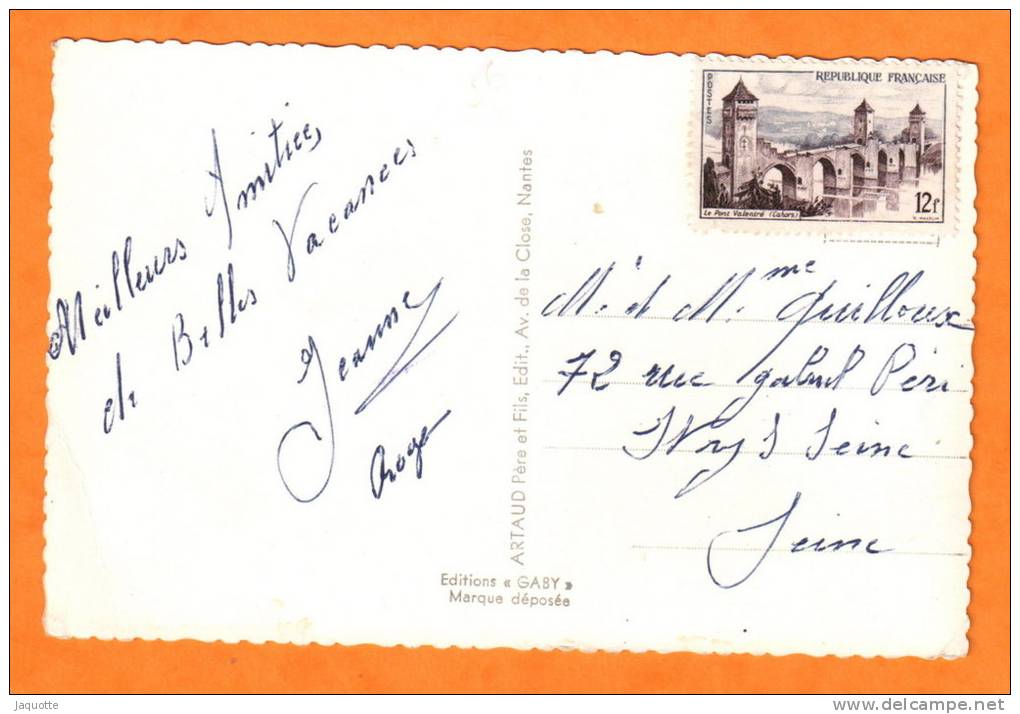 Meilleurs Amitiées
de Belles Vacances
Jeanne
Roger
ARTAUD Père et Fils, Edit., Av. de la Close, Nantes
Editions « GABY »
Marque déposée
POSTES
REPUBLIQUE FRANÇAISE
Le Pont Valentré (Cahors)
12f
M. et Mme Guilloux
72 rue Gabriel Péri
IVry S Seine
Seine
Jaquotte
delcampe.net